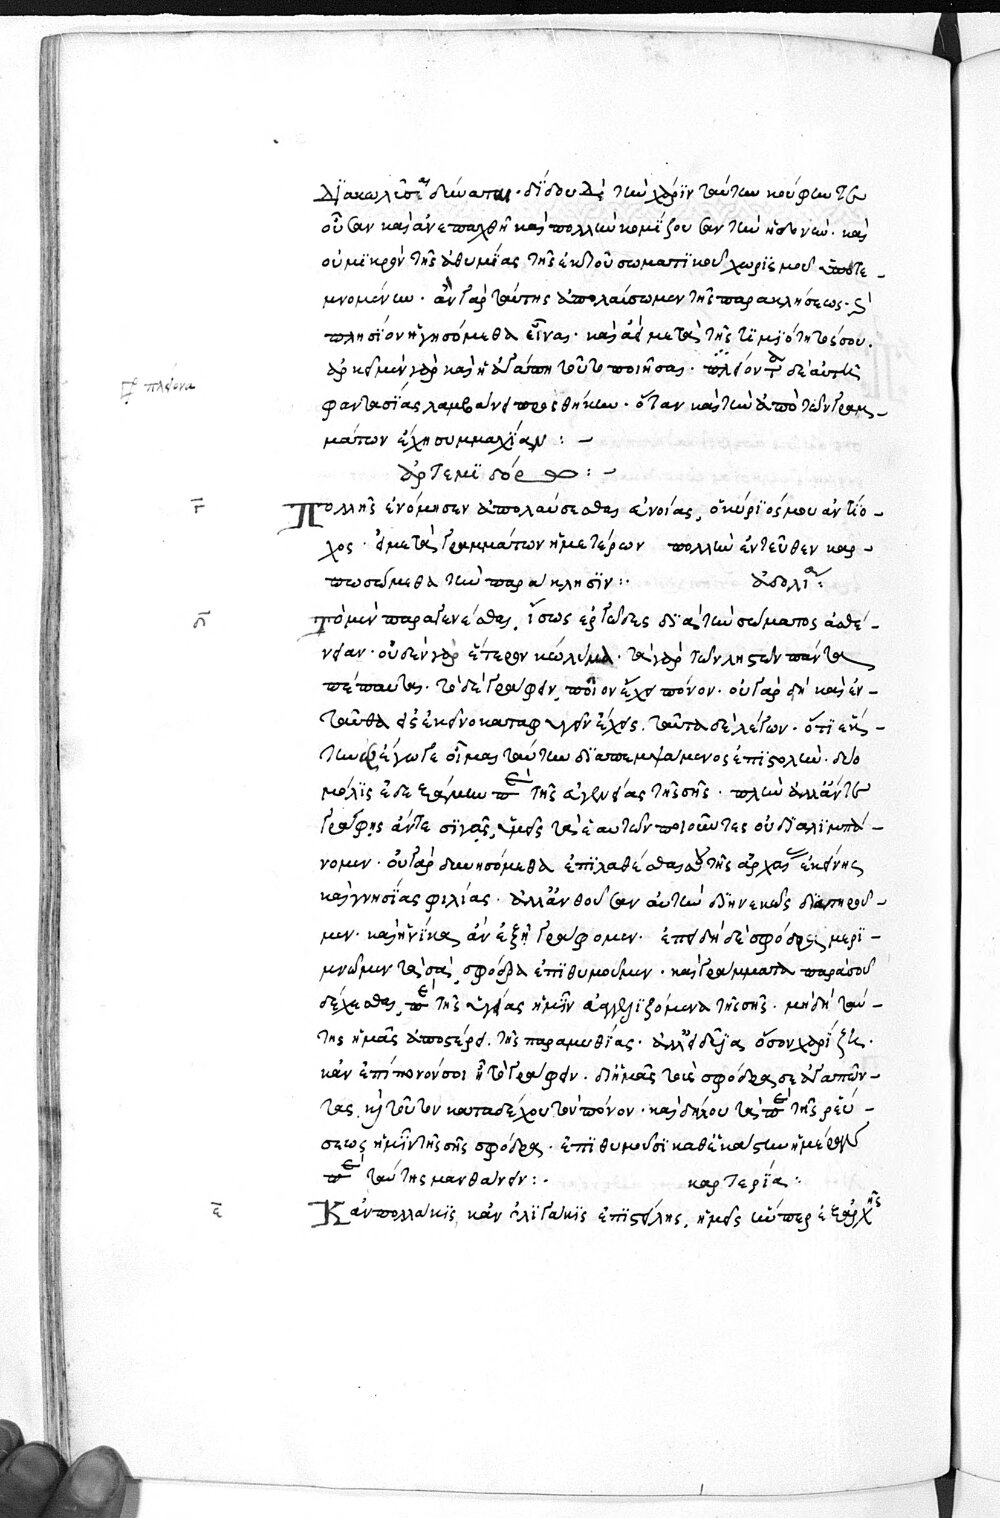 διακωλύσει δύναται. δίδου δὲ τὴν χάριν ταύτην κούφην τε
οὖσαν καὶ ἀνεπαχθῆ καὶ πολλὴν κομίζουσαν τὴν ἡδονήν. καὶ
οὐ μικρὸν τῆς ἀθυμίας τῆς ἐκ τοῦ σωματικοῦ χωρισμοῦ ὑποτε-
μνομένην. ἂν γὰρ ταύτης ἀπολαύσωμεν τῆς παρακλήσεως.
πλησίον ἡγησόμεθα εἶναι. καὶ ἀεὶ μετὰ τῆς τιμιότητός σου.
ἀρκεῖ μὲν γὰρ καὶ ἡ ἀγάπη τοῦτο ποιῆσαι. πλέον δὲ αὐτῆς
πλείονα
φαντασίας λαμβάνει προσθήκην. ὅταν καὶ τὴν ἀπὸ τῶν γραμ-
μάτων ἔχη συμμαχίαν : -
ἀρτεμιδώρω : -
γ
Πολλῆς ἐνόμισεν ἀπολαύσεσθαι εὐνοίας, ὁ κύριός μου ἀντίο-
χος. εἰ μετὰ γραμμάτων ἡμετέρων πολλὴν ἐντεῦθεν καρ-
πωσώμεθα τὴν παράκλησιν : ἀσολία :
δ
Τὸ μὲν παραγενέσθαι, ἴσως ἐργῶδες διὰ τὴν σώματος ἀσθέ-
νειαν. οὐδὲν γὰρ ἕτερον κώλυμα. τὰ γὰρ τῶν ληστῶν πάντα
πέπαυται. τὸ δὲ γράφειν, ποῖον ἔχει πόνον. οὐ γὰρ δὴ καὶ ἐν-
ταῦθα εἰς ἐκεῖνο καταφυγεῖν ἔχεις. ταῦτα δὲ λέγων. ὅτι εἷς
ἔγωγε οἶμαι ταύτην διαπεμψάμενος ἐπιστολήν. δύο
μόλις ἐδεξάμην περὶ τῆς εὐγενείας τῆς σῆς. πλὴν ἀλλ' ἄν τε
γράφης ἄν τε σιγᾶς, ἡμεῖς τὰ ἑαυτῶν ποιοῦντες οὐ διαλιμπά-
νομεν. οὐ γὰρ δυνησόμεθα ἐπιλαθέσθαι τῆς ἀγάπης ἐκείνης
καὶ γνησίας φιλίας. ἀλλ' ἀνθοῦσαν αὐτὴν διηνεκῶς διατηροῦ-
μεν. καὶ ἡνίκα ἂν ἐξῆ γράφομεν. ἐπειδὴ δὲ σφόδρα μερι-
μνῶμεν τὰ σὰ, σφόδρα ἐπιθυμοῦμεν. καὶ γράμματα παρὰ σοῦ
δέχεσθαι, περὶ τῆς ὑγείας ἡμῖν εὐαγγελιζόμενα τῆς σῆς. μὴ δὴ ταύ-
της ἡμᾶς ἀποστέρει. τῆς παραμυθίας. ἀλλ' εἰδυῖα ὅσον χαρίζη.
κἂν ἐπίπονόν σοι ἦ τὸ γράφειν. δι' ἡμᾶς τοὺς σφόδρα σε ἀγαπῶν-
τας, καὶ τοῦτον καταδέχου τὸν πόνον. καὶ δήλου τὰ περὶ τῆς ῥώ-
σεως ἡμῖν τῆς σῆς σφόδρα. ἐπιθυμοῦσι καθ' ἑκάστην ἡμέραν
περὶ ταύτης μανθάνειν : καρτερία :
ε
Κἂν πολλάκις, κἂν ὀλιγάκις ἐπιστέλης, ἡμεῖς ἥνπερ ἐξ ἀρχῆς